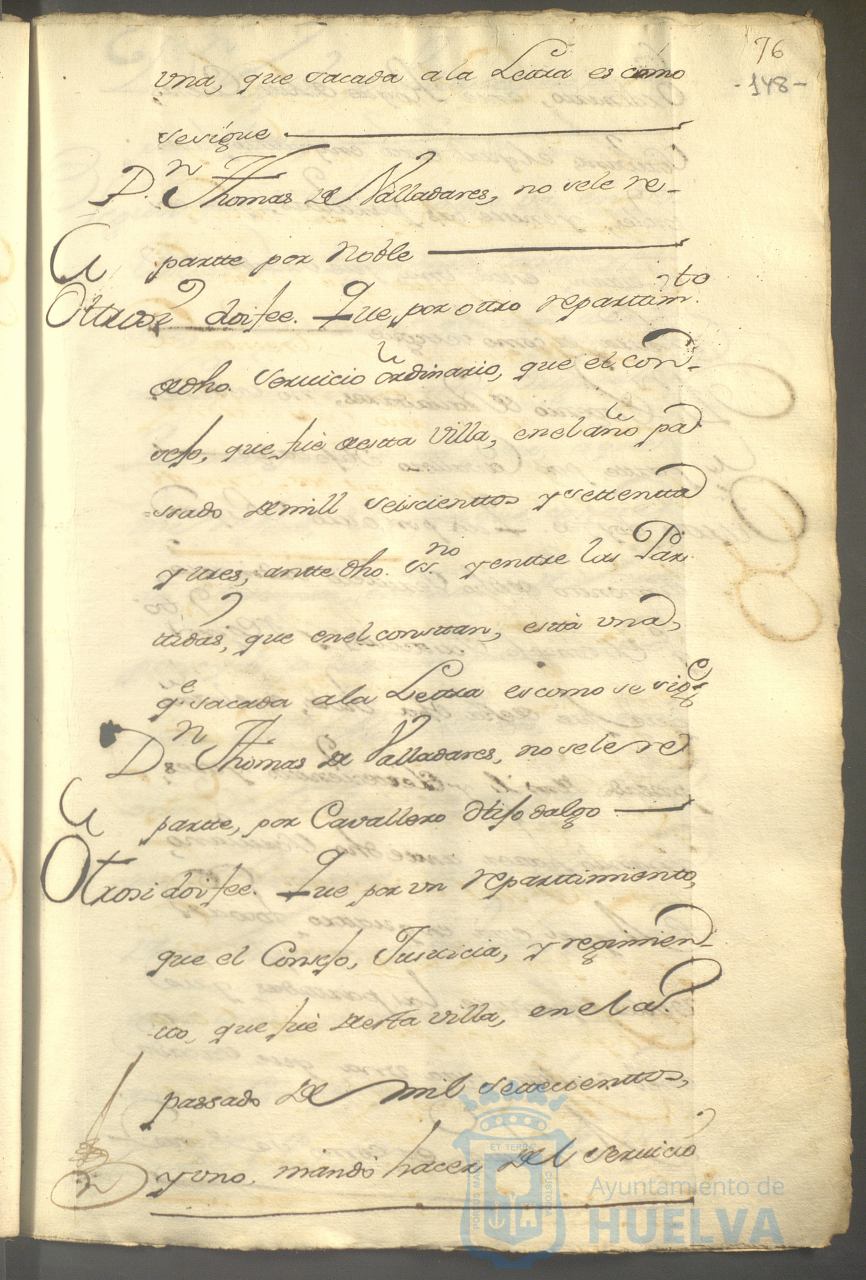 76
-148-
vna, que sacada a la Letra es como
se sigue
D.n Thomas de Valladares, no se le re-
partte por Noble
Ottrosi doi fee. Que, por ottro repartim.to
de dho. Seruicio ordinario, que el con-
sejo, que fue de esta Villa, en el año pa
ssado de mill seiscienttos y settentta
y tres, antte dho. ss.no y entre las Par-
tidas, que en el consttan, esttà vna,
q.e sacada a la Letra es como se sigue
D.n Thomas de Valladares, no se le re
partte, por Cavallero Hijodalgo
Otrosi doi fee. Que por vn repartimiento,
que el Consejo, Justicia, y regimien-
to, que fue de esta villa, en el a.º
passado de mil settecienttos,
y vno, mandò hacer del seruicio
ET TERRE
CUSTODIA
Ayuntamiento de
HUELVA